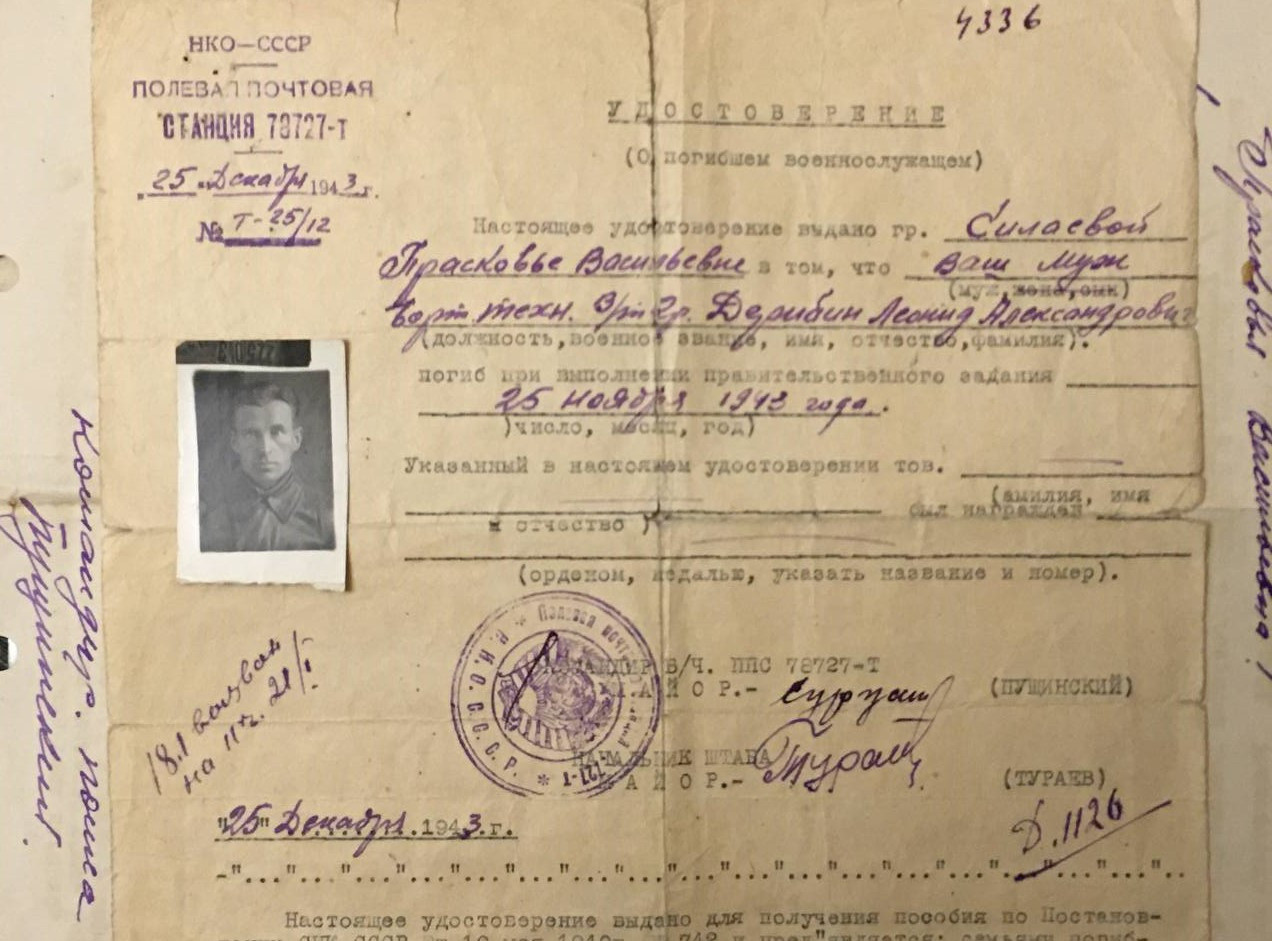 4336
НКО—СССР
ПОЛЕВАЯ ПОЧТОВАЯ
СТАНЦИЯ 78727-т
"25" Декабря 1943 г.
№ Т-25/12
УДОСТОВЕРЕНИЕ
(О погибшем военнослужащем)
Настоящее удостоверение выдано гр. Силаевой
Прасковье Васильевне в том, что Ваш муж
(муж,жена,сын)
Борт техн. Дерибин Леонид Александрович
(должность,военное звание, имя, отчество,фамилия).
погиб при выполнении правительственного задания
25 ноября 1943 года.
)число, месяц, год)
Указанный в настоящем удостоверении тов.
(амилия, имя
и отчество ) был награжден
(орденом, медалью, указать название и номер).
КОМАНДИР В/Ч. ППС 78727-Т
МАЙОР.- (ПУЩИНСКИЙ)
НАЧАЛЬНИК ШТАБА
МАЙОР.- (ТУРАЕВ)
Н.К.О. С.С.С.Р. * Полевая
18.1 вызван
на 11 ч. 21/I
"25" Декабря 1943.г.
Д.1126
-"..."..."..."..."..."..."..."..."..."..."..."..."..."..."..."..."..."..
Настоящее удостоверение выдано для получения пособия по Постанов-
СССР
Командир. полка
Пущинский.
Васильевна!